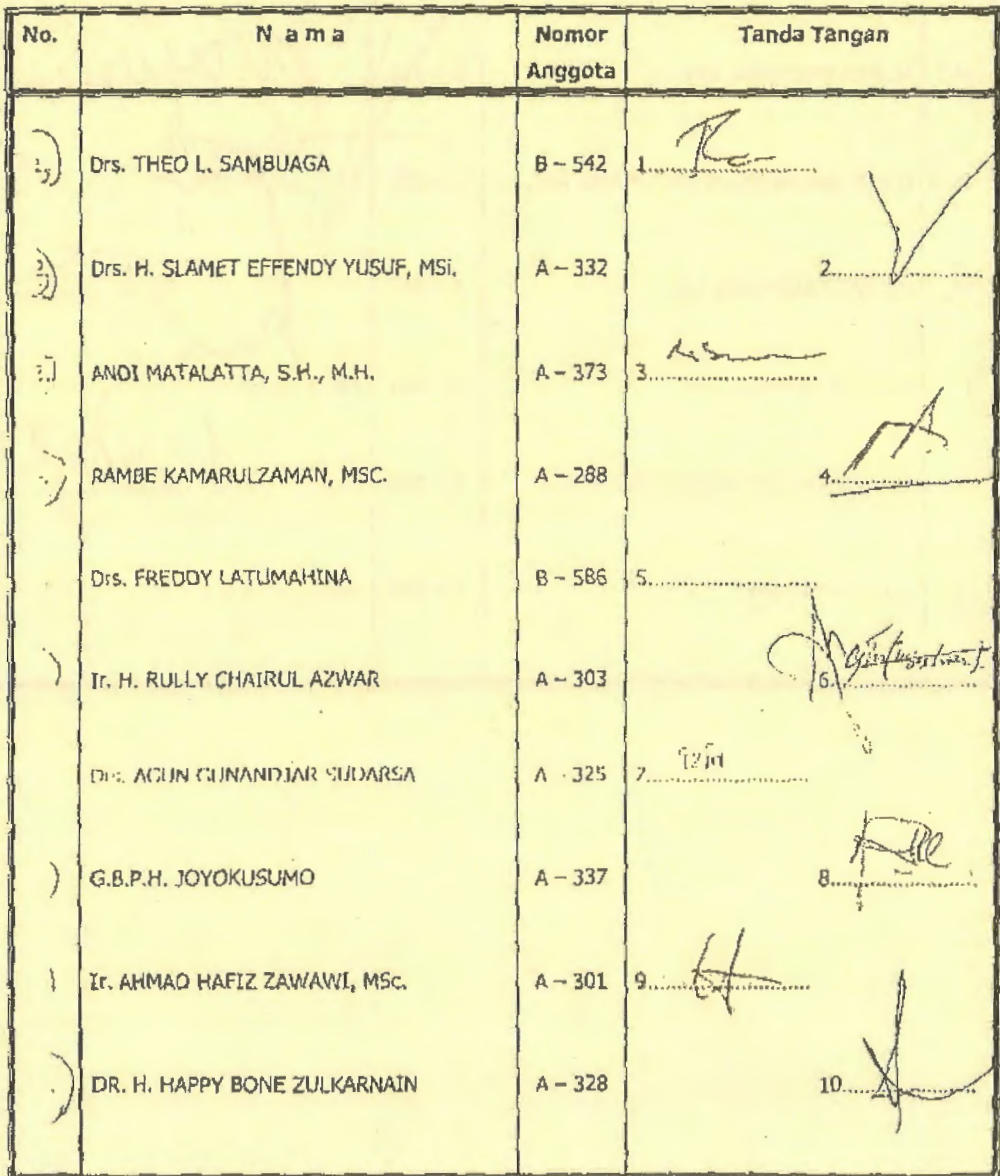 No. Nama Nomor Anggota Tanda Tangan
Drs. THEO L. SAMBUAGA B - 542 1
Drs. H. SLAMET EFFENDY YUSUF, MSi. A - 332 2
ANDI MATALATTA, S.H., M.H. A - 373 3
RAMBE KAMARULZAMAN, MSC. A - 288 4
Drs. FREDDY LATUMAHINA B - 586 5
Ir. H. RULLY CHAIRUL AZWAR A - 303 6
Drs. AGUN GUNANDJAR SUDARSA A - 325 7
G.B.P.H. JOYOKUSUMO A - 337 8
Ir. AHMAD HAFIZ ZAWAWI, MSc. A - 301 9
DR. H. HAPPY BONE ZULKARNAIN A - 328 10